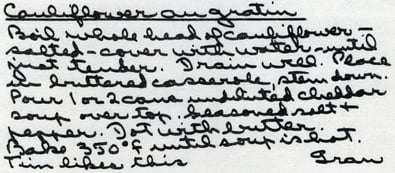 Cauliflower au gratin
Boil whole head of cauliflower -
salted - cover with water - until
just tender. Drain well. Place
in buttered casserole, stem down.
Pour 1 or 2 cans undiluted cheddar
soup over top. Seasoned salt +
pepper. Dot with butter.
Bake 350°F until soup is hot.
Tim likes this Gram